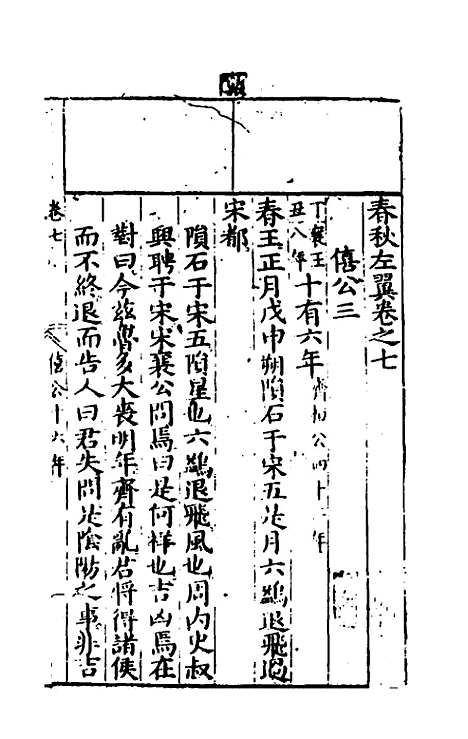 春秋左翼卷之七
僖公三
丁襄王
丑八年
十有六年
齊桓公四十三年
春王正月戊申朔隕石于宋五是月六鷁退飛過
宋都
隕石于宋五隕星也六鷁退飛風也周内史叔
興聘于宋宋襄公問焉曰是何祥也吉凶焉在
對曰今玆魯多大喪明年齊有亂君將得諸侯
而不終退而告人曰君失問是陰陽之事非吉
卷七
僖公十六年
一